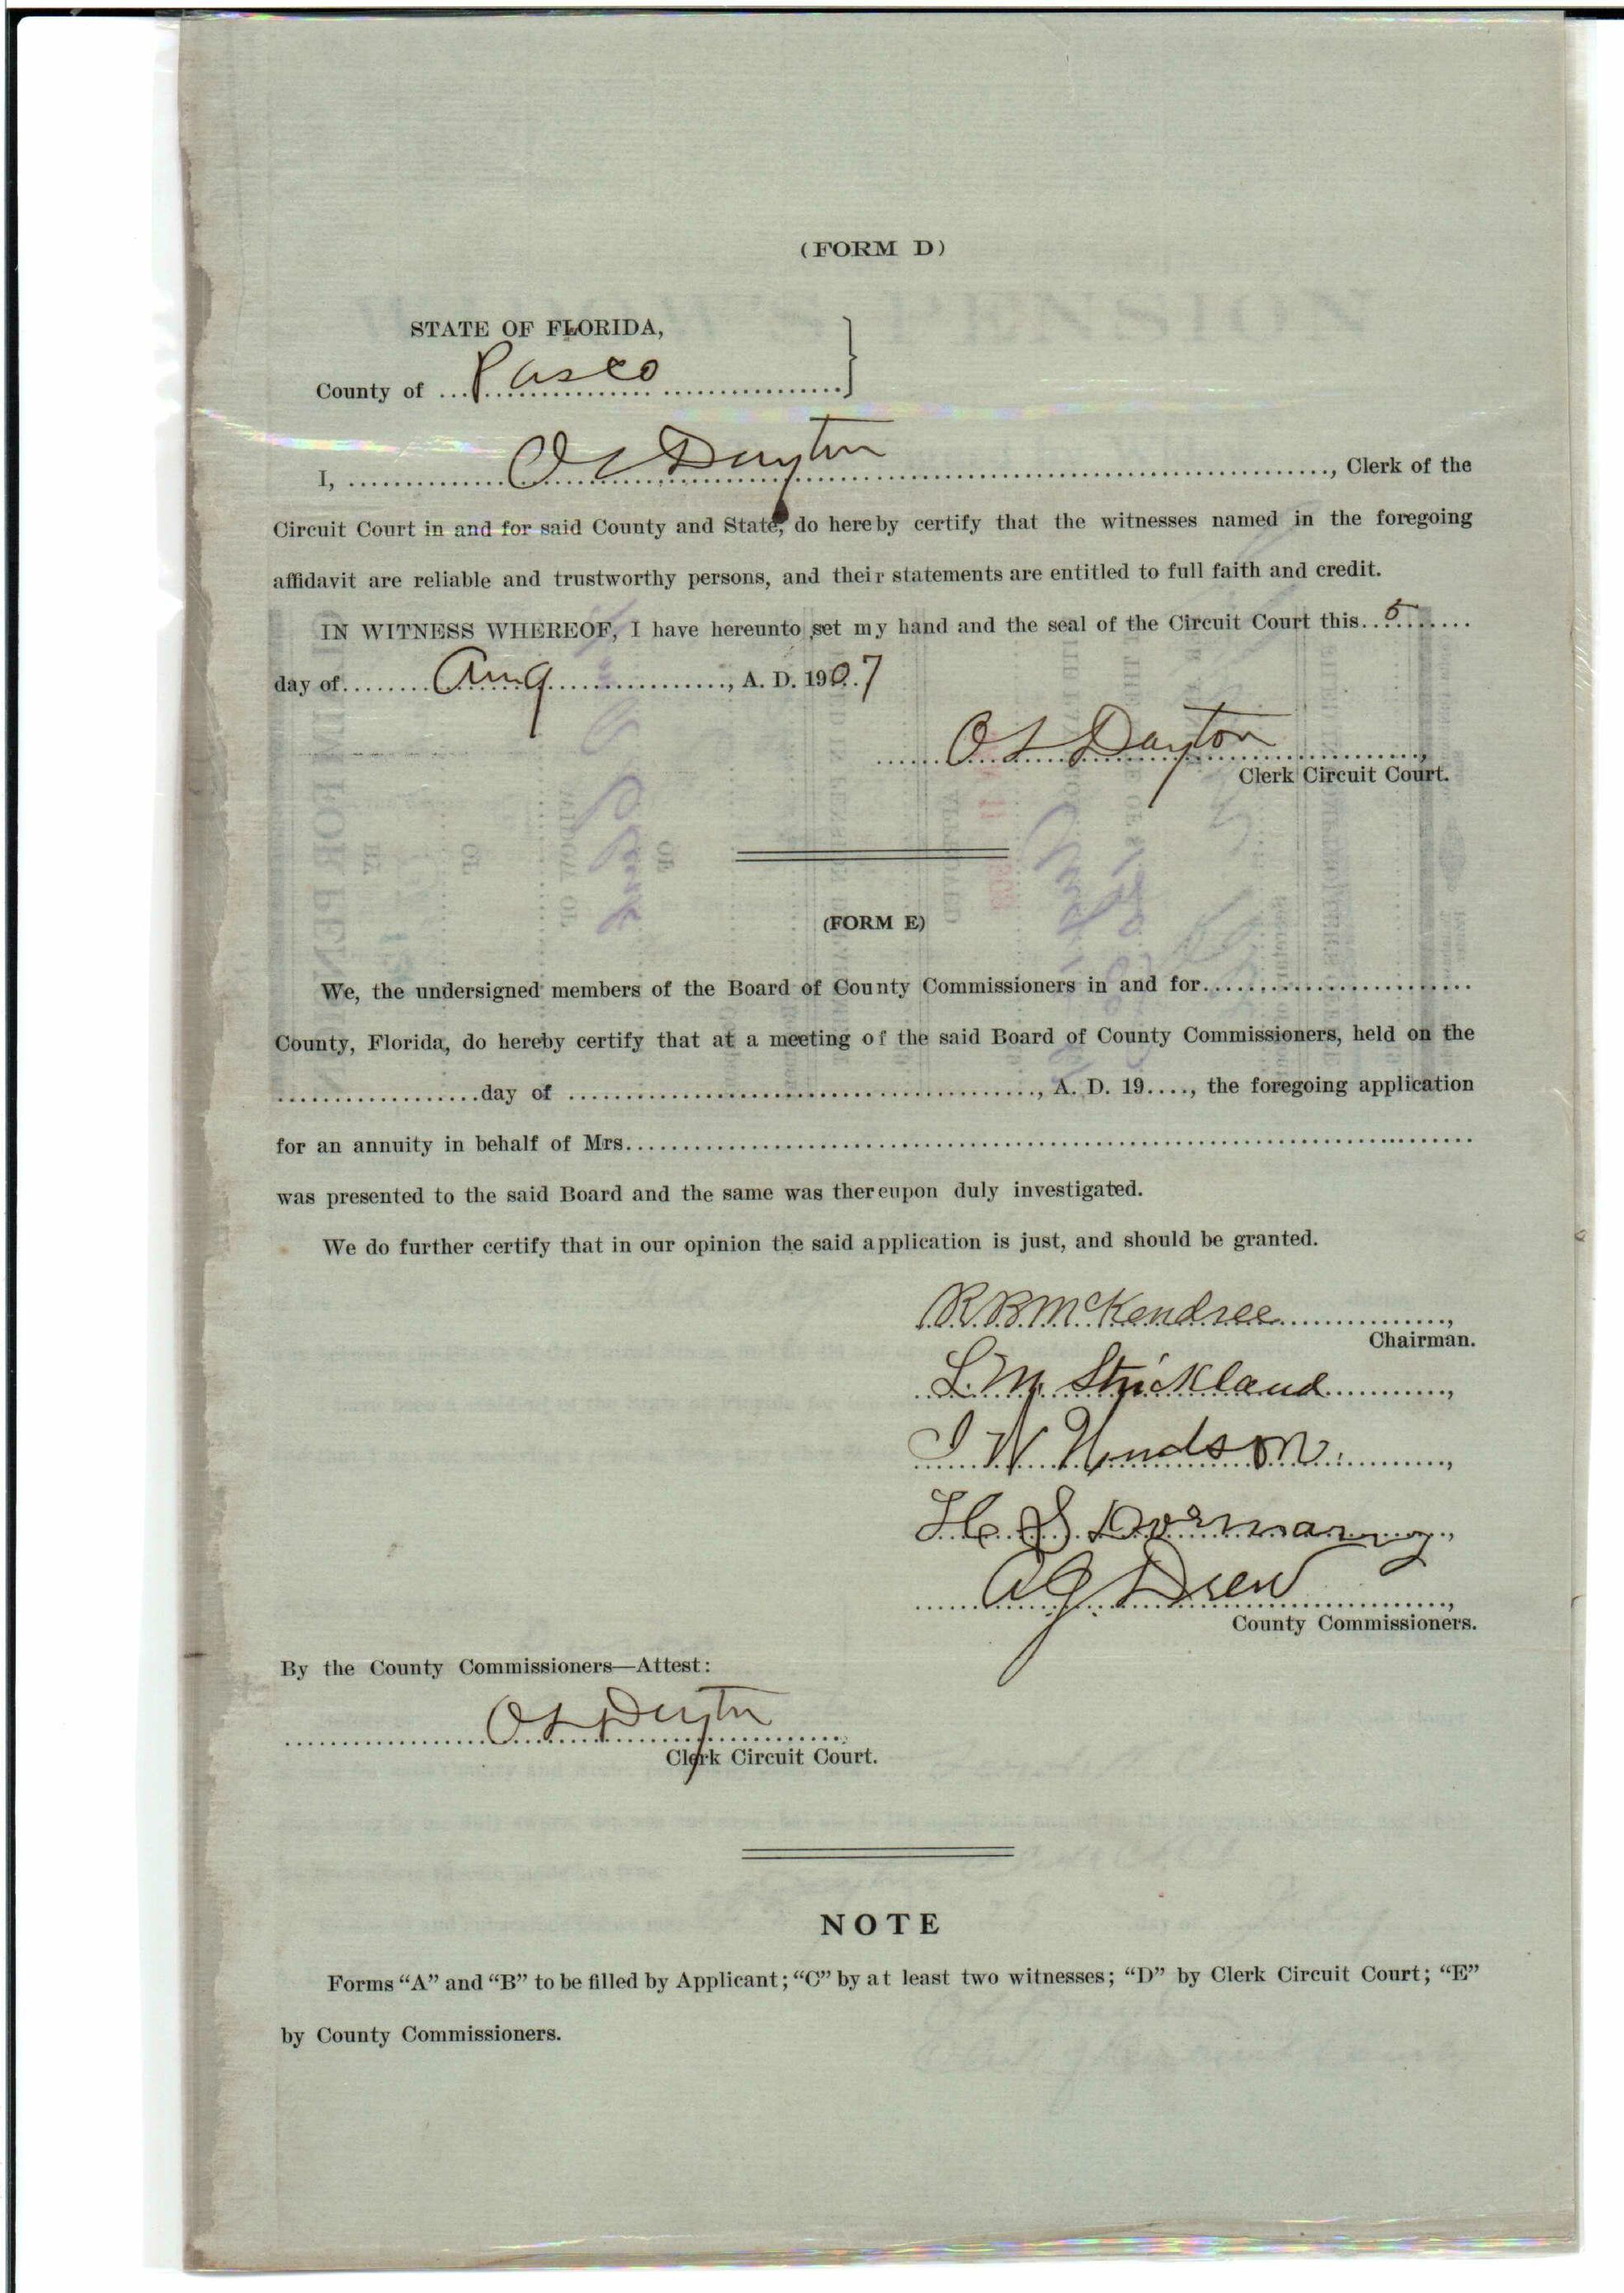 (FORM D)
STATE OF FLORIDA,
County of ... Pasco ...
I, ... O L Dayton ..., Clerk of the
Circuit Court in and for said County and State, do hereby certify that the witnesses named in the foregoing
affidavit are reliable and trustworthy persons, and their statements are entitled to full faith and credit.
IN WITNESS WHEREOF, I have hereunto set my hand and the seal of the Circuit Court this.. 5 ....
day of........ Aug ........, A. D. 1907
O L Dayton
Clerk Circuit Court.
(FORM E)
We, the undersigned members of the Board of County Commissioners in and for........................
County, Florida, do hereby certify that at a meeting of the said Board of County Commissioners, held on the
..................day of ........................................, A. D. 19...., the foregoing application
for an annuity in behalf of Mrs........................................................................
was presented to the said Board and the same was thereupon duly investigated.
We do further certify that in our opinion the said application is just, and should be granted.
R. B. McKendree ..............,
Chairman.
L. M. Strickland ..........,
I W Hudson ..........,
H. S. Dormany.,
A J Drew ..........,
County Commissioners.
By the County Commissioners—Attest:
O L Dayton
Clerk Circuit Court.
NOTE
Forms “A” and “B” to be filled by Applicant; “C” by at least two witnesses; “D” by Clerk Circuit Court; “E”
by County Commissioners.